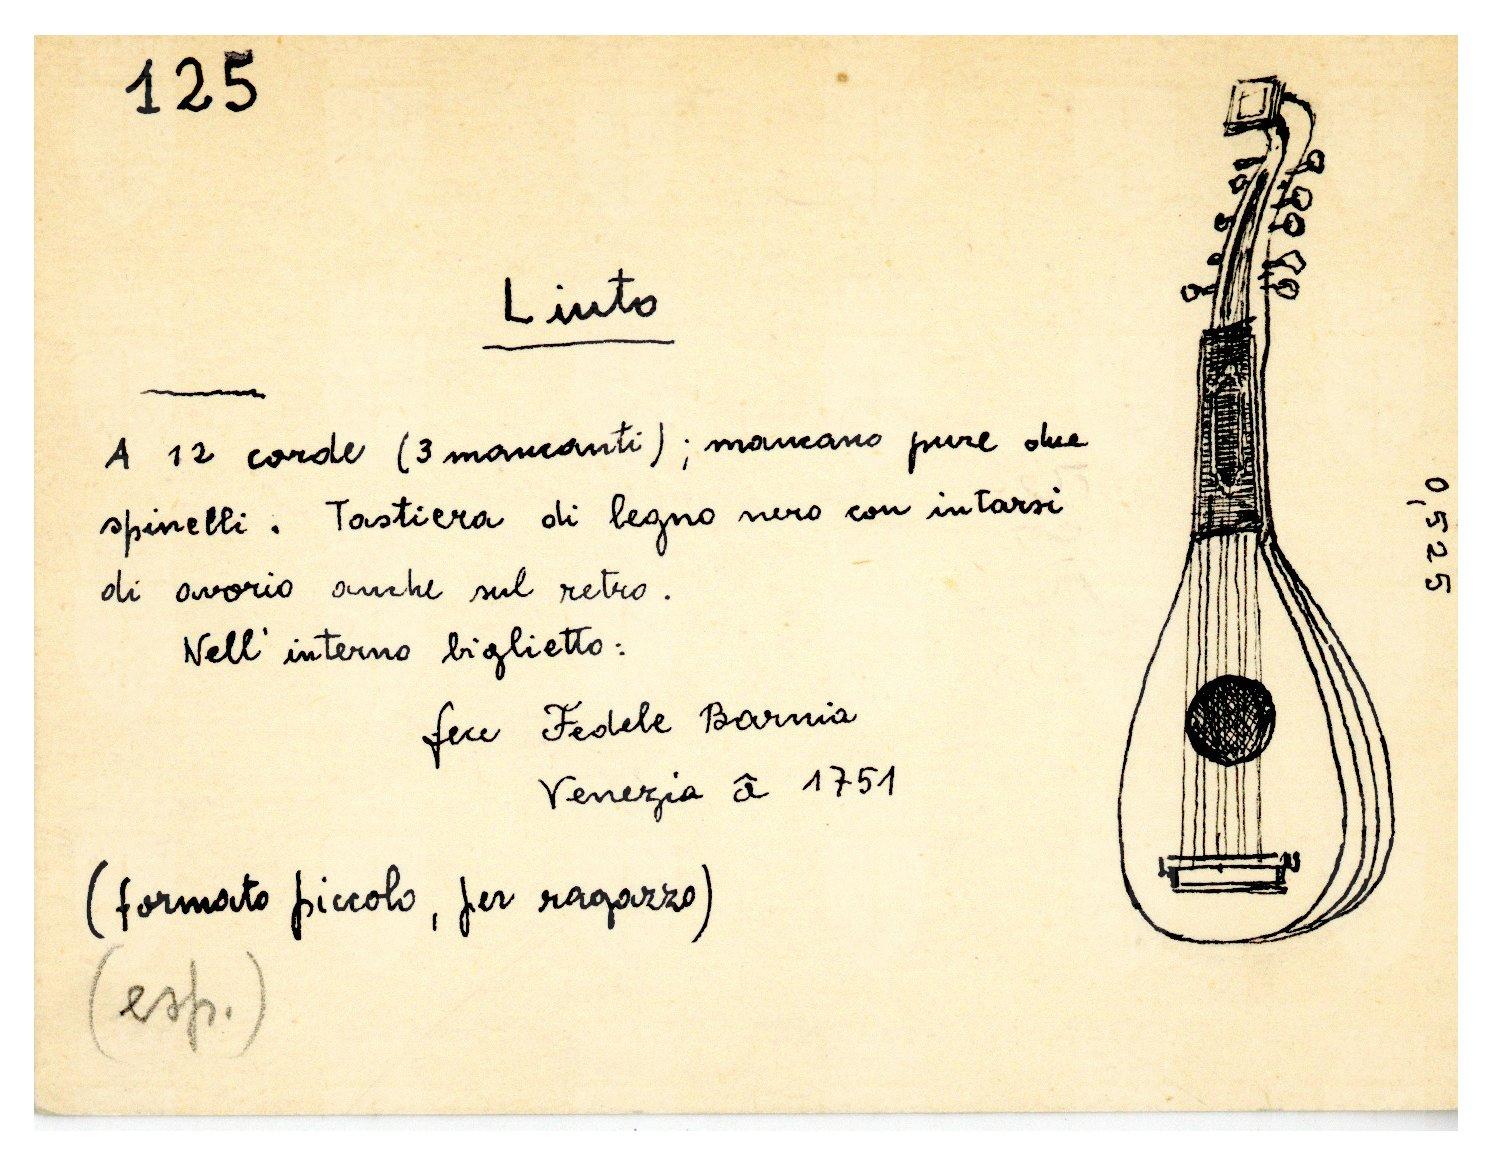 125
Liuto
A 12 corde (3 mancanti); mancano pure due
spinelli. Tastiera di legno nero con intarsi
di avorio anche sul retro.
Nell' interno biglietto:
fece Fedele Barnia
Venezia â 1751
(formato piccolo, per ragazzo)
(esp.)
0,525